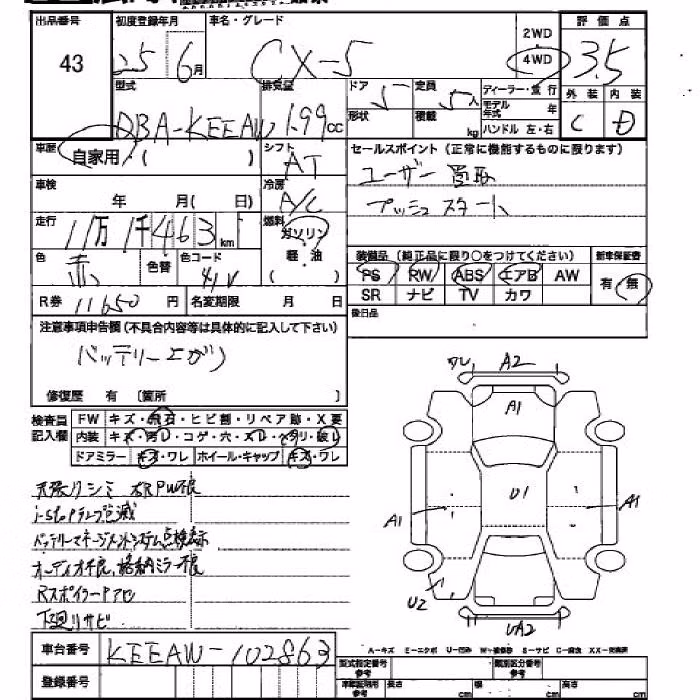 出品番号 初度登録年月 車名・グレード 評価点
43 25 6月 CX-5 2WD 4WD 3.5
型式 排気量 ドア 5 定員 5人 ディーラー・並行 外装 内装
DBA-KEEAW 1.99cc 形状 積載 kg モデル年式 年 C D
ハンドル 左・右
車歴 自家用/( ) シフト AT セールスポイント(正常に機能するものに限ります)
ユーザー買取
車検 年 月( 日) 冷房 A/C プッシュスタート
走行 11万1千463km 燃料 ガソリン 軽・油 ( )
色 赤 色替 色コード 41V 装備品(純正品に限り○をつけてください) 新車保証書
PS RW ABS エアB AW 有・無
R券 11650円 名変期限 月 日 SR ナビ TV カワ
後日品
注意事項申告欄(不具合内容等は具体的に記入して下さい)
バッテリー上がり
修復歴 有 〔箇所 〕
ワレ A2
検査員記入欄 FW キズ・飛石・ヒビ割・リペア跡・X要
内装 キズ・汚レ・コゲ・穴・スレ・ヘタリ・破レ
ドアミラー キズ・ワレ ホイール・キャップ キズ・ワレ
A1
天張リシミ 右RPW不良
U1
A1 A1
i-stopランプ点滅
バッテリーマネージメントシステム点検表示
オーディオ不良、格納ミラー不良
Rスポイラーアセ
U2
下廻リサビ
UA2
車台番号 KEEAW-102863
A-キズ E-エクボ U-凹み W-補修跡 S-サビ C-腐食 XX-交換済
登録番号 型式指定番号 参考 類別区分番号 参考
長さ cm 幅 cm 高さ cm